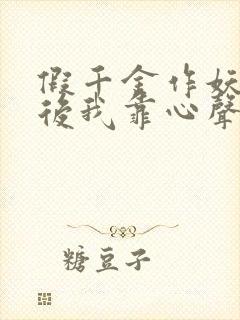 假千金作妖
後我靠心聲
糖豆子